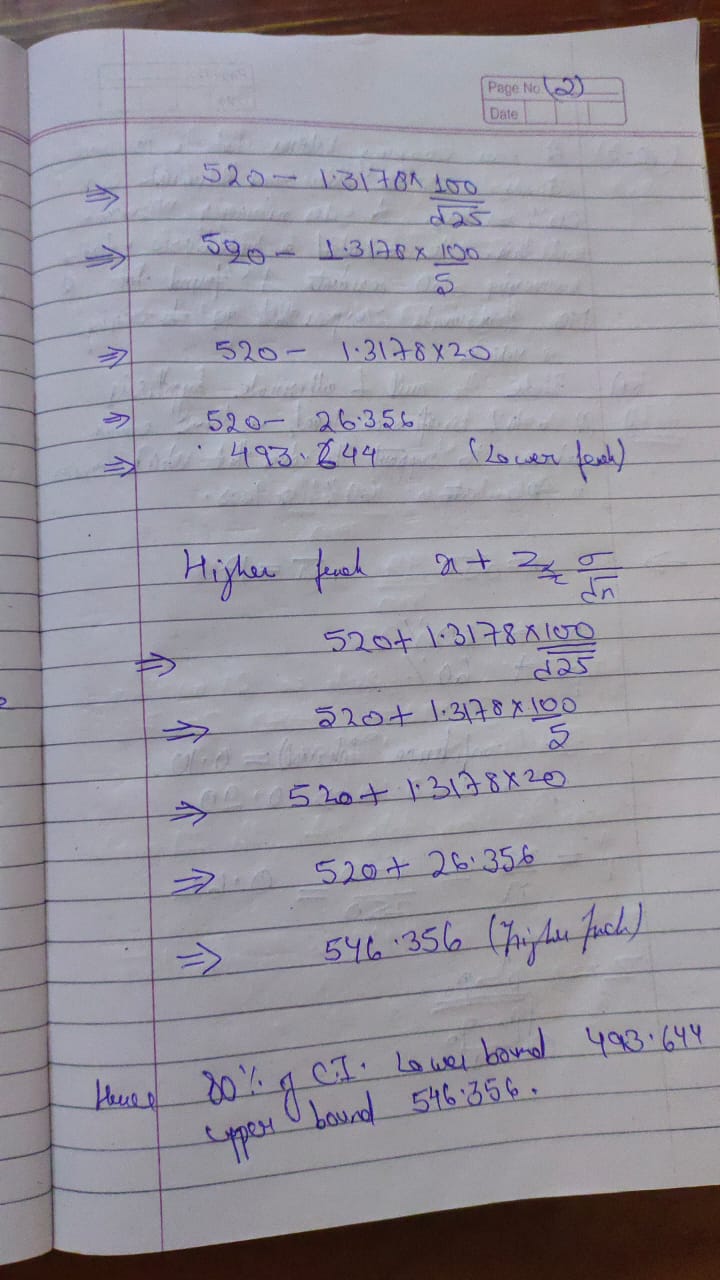 Page No (2)
Date
⇒ 520 - 1.3178 × 100/√25
⇒ 520 - 1.3178 × 100/5
⇒ 520 - 1.3178×20
⇒ 520 - 26.356
⇒ 493.644 (Lower fench)
Higher fench x + Zα/2 σ/√n
⇒ 520 + 1.3178 × 100/√25
⇒ 520 + 1.3178 × 100/5
⇒ 520 + 1.3178×20
⇒ 520 + 26.356
⇒ 546.356 (Higher fench)
Hence 80% of C.I. Lower bound 493.644
upper bound 546.356.